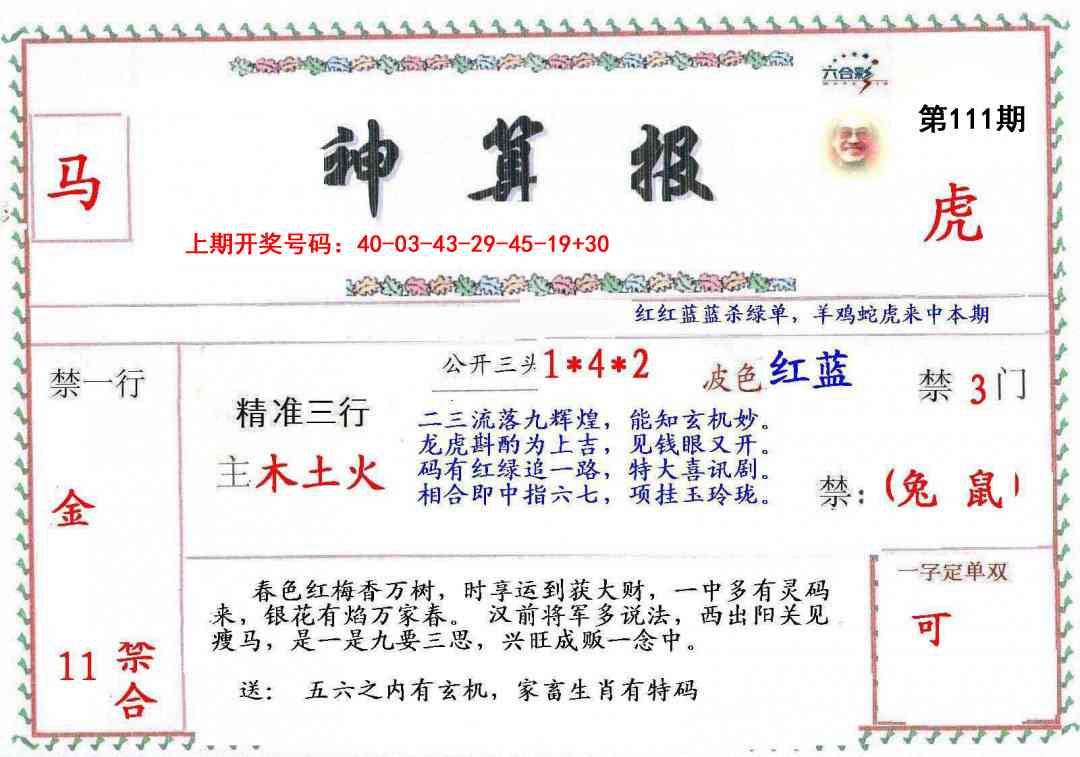 六合彩
第111期
马
神算报
虎
上期开奖号码：40-03-43-29-45-19+30
红红蓝蓝杀绿单，羊鸡蛇虎来中本期
禁一行
金
11
禁合
精准三行
主木土火
公开三头1*4*2
波色红蓝
二三流落九辉煌，能知玄机妙。
龙虎斟酌为上吉，见钱眼又开。
码有红绿追一路，特大喜讯剧。
相合即中指六七，项挂玉玲珑。
禁3门
禁：(兔 鼠)
春色红梅香万树，时享运到获大财，一中多有灵码
来，银花有焰万家春。 汉前将军多说法，西出阳关见
瘦马，是一是九要三思，兴旺成贩一念中。
送： 五六之内有玄机，家畜生肖有特码
一字定单双
可